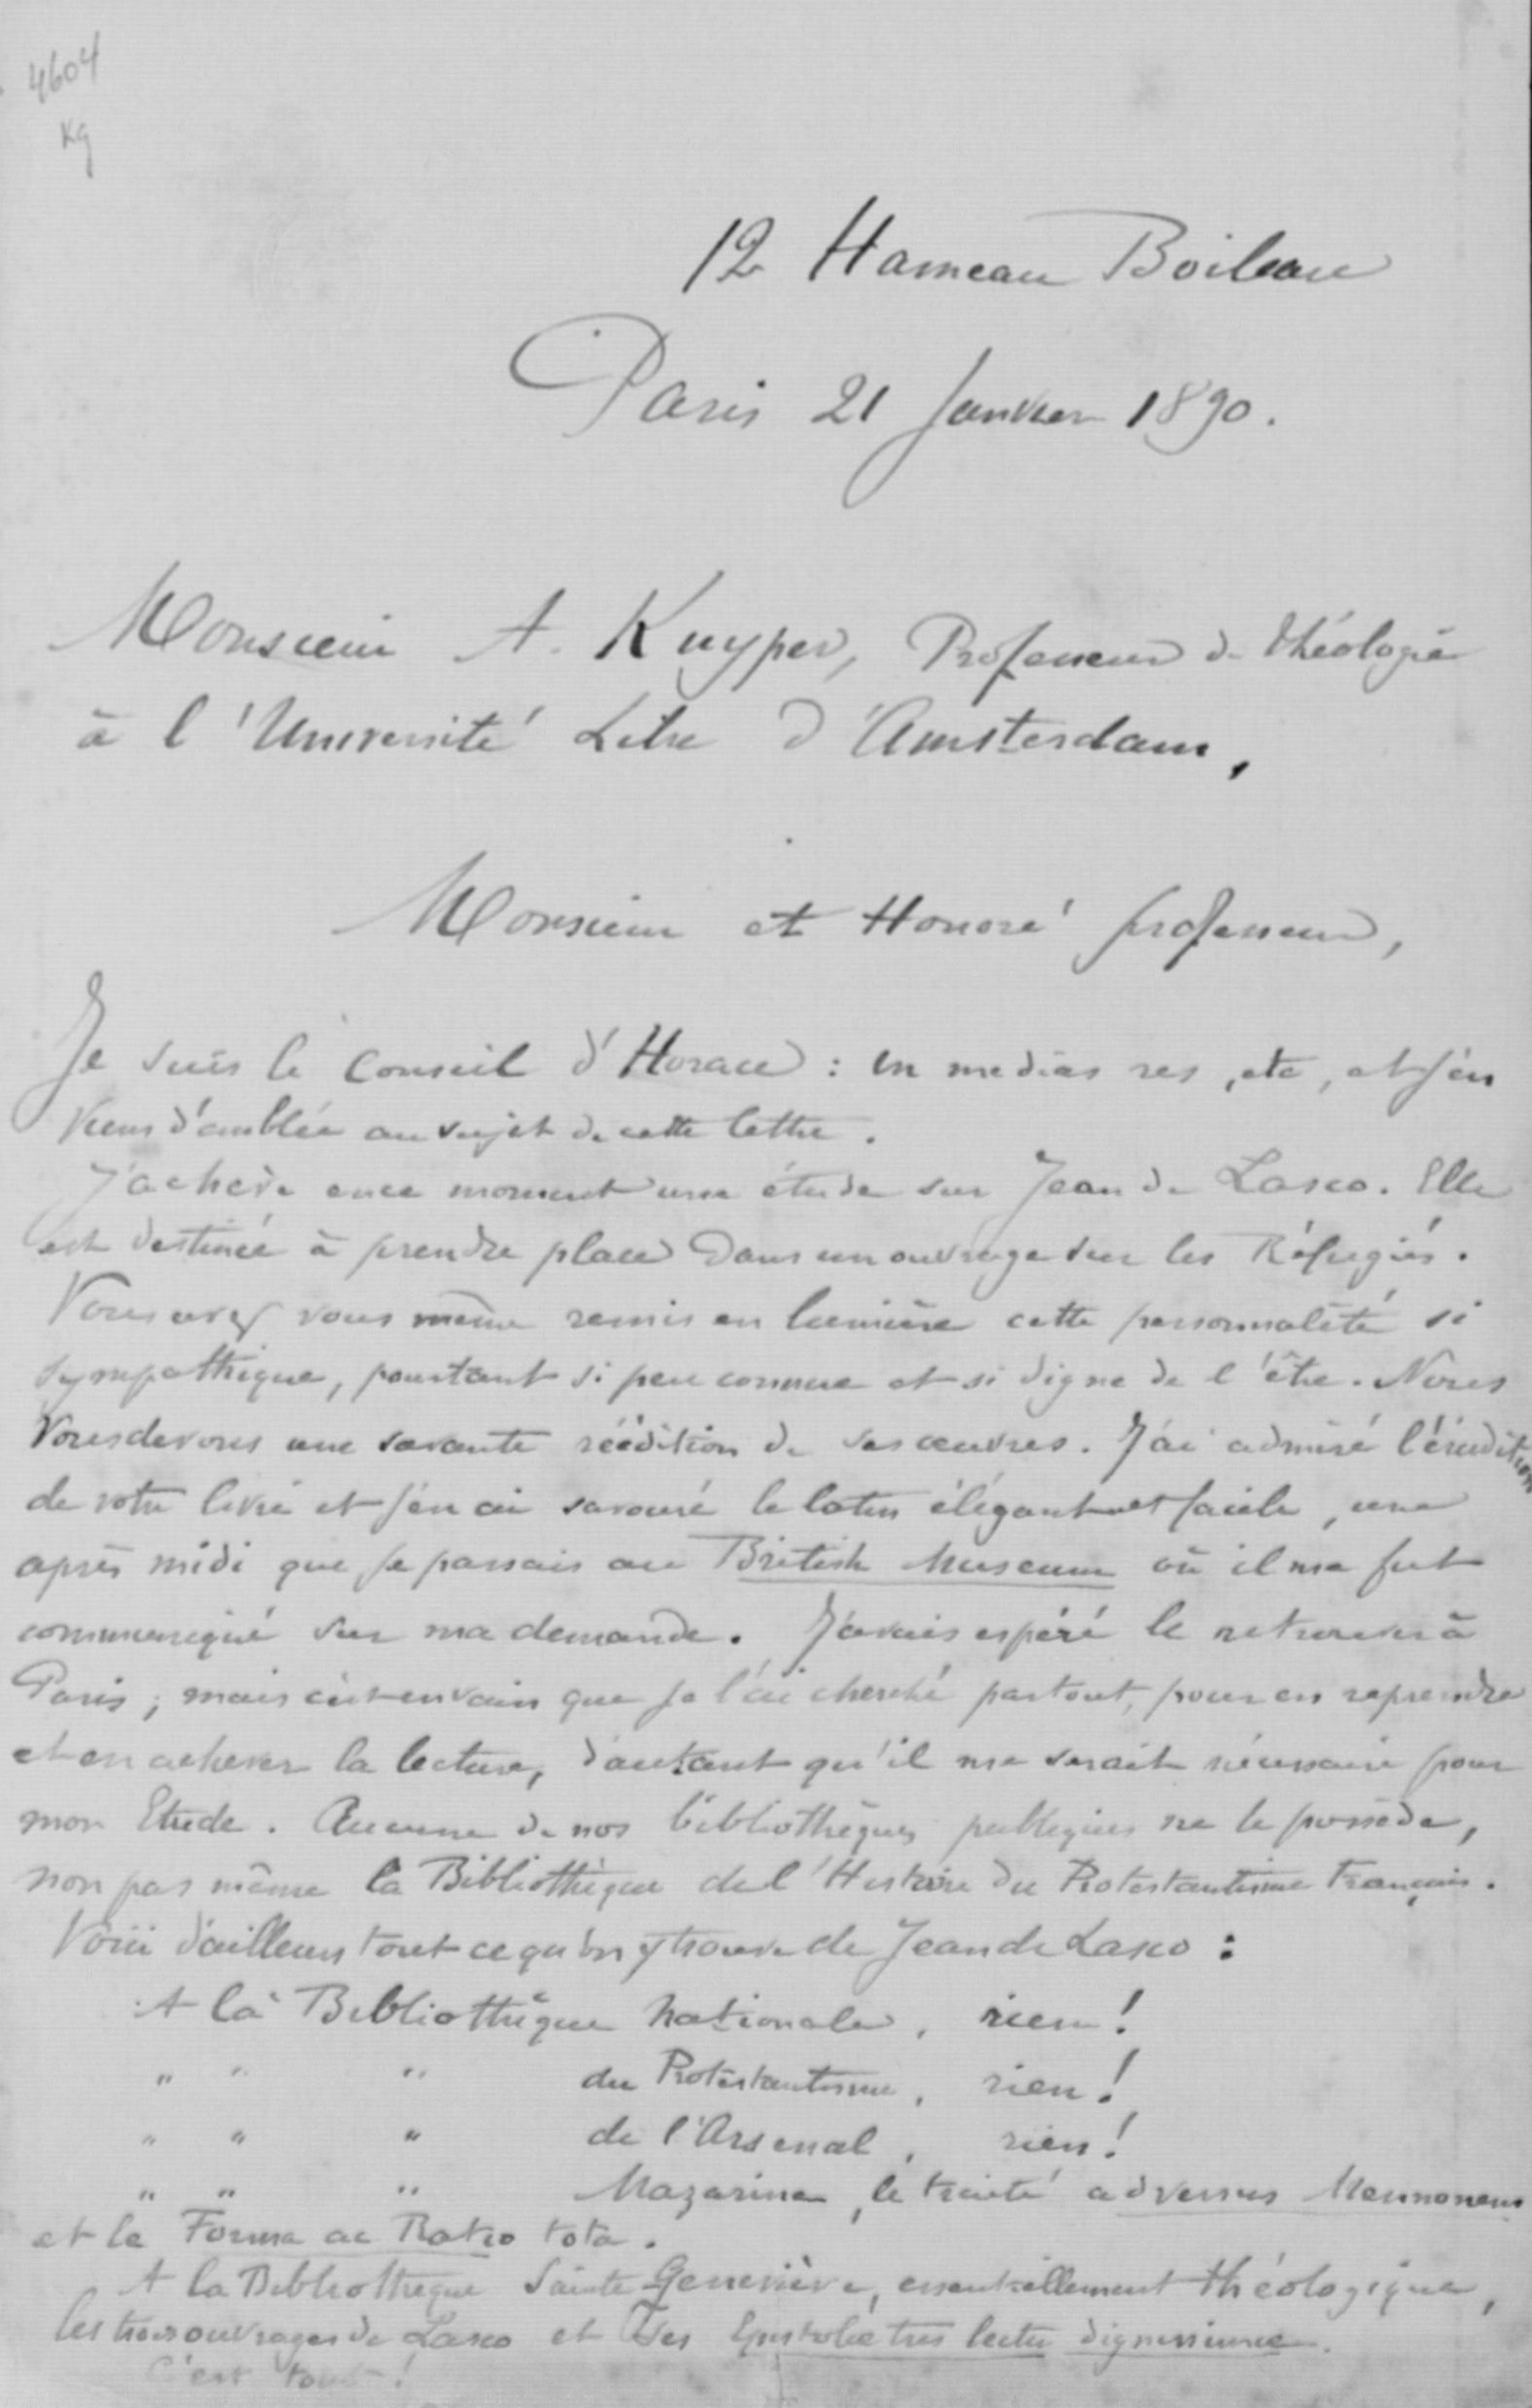 4604
Kg
12 Hameau Boileau
Paris 21 Janvier 1890.
Monsieur A. Kuyper, Professeur de théologie
à l'Université Libre d'Amsterdam,
Monsieur et Honoré professeur,
Je suis le Conseil d'Horace : in medias res, etc, et j'en
viens d'emblée au sujet de cette lettre.
J'achève en ce moment une étude sur Jean de Lasco. Elle
est destinée à prendre place dans un ouvrage sur les Réfugiés.
Vous avez vous même remis en lumière cette personnalité si
sympathique, pourtant si peu connue et si digne de l'être. Nous
Vous devons une savante réédition de ses œuvres. J'ai admiré l'érudition
de votre livre et j'en ai savouré le latin élégant et facile, une
après midi que je passais au British Museum où il me fut
communiqué sur ma demande. J'avais espéré le retrouver à
Paris ; mais c'est en vain que je l'ai cherché partout, pour en reprendre
et en achever la lecture, d'autant qu'il me serait nécessaire pour
mon Etude. Aucune de nos bibliothèques publiques ne le possède,
non pas même la Bibliothèque de l'Histoire du Protestantisme Français.
Voici d'ailleurs tout ce qu'on y trouve de Jean de Lasco :
A la Bibliothèque Nationale, rien !
" " " du Protestantisme, rien !
" " " de l'Arsenal, rien !
" " " Mazarine, le traité adversus Mennonem
et le Forma ac Ratio tota.
A la Bibliothèque Sainte Geneviève, essentiellement théologique,
les trois ouvrages de Lasco et Epistolæ tres lectu dignissimæ.
C'est tout !